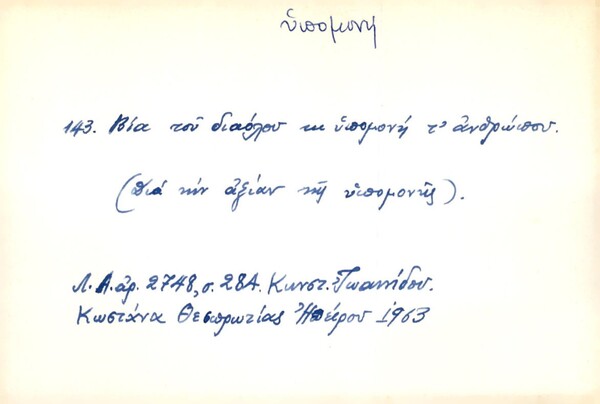 ὑπομονή
143. Βία τοῦ διαόλου κι ὑπομονή τ' ἀνθρώπου.
(Διά τήν ἀξίαν τῆς ὑπομονῆς).
Λ.Α. ἀρ. 2748, σ. 284. Κωνστ. Ἰωαννίδου.
Κωστάνα Θεσπρωτίας Ἠπείρου 1963